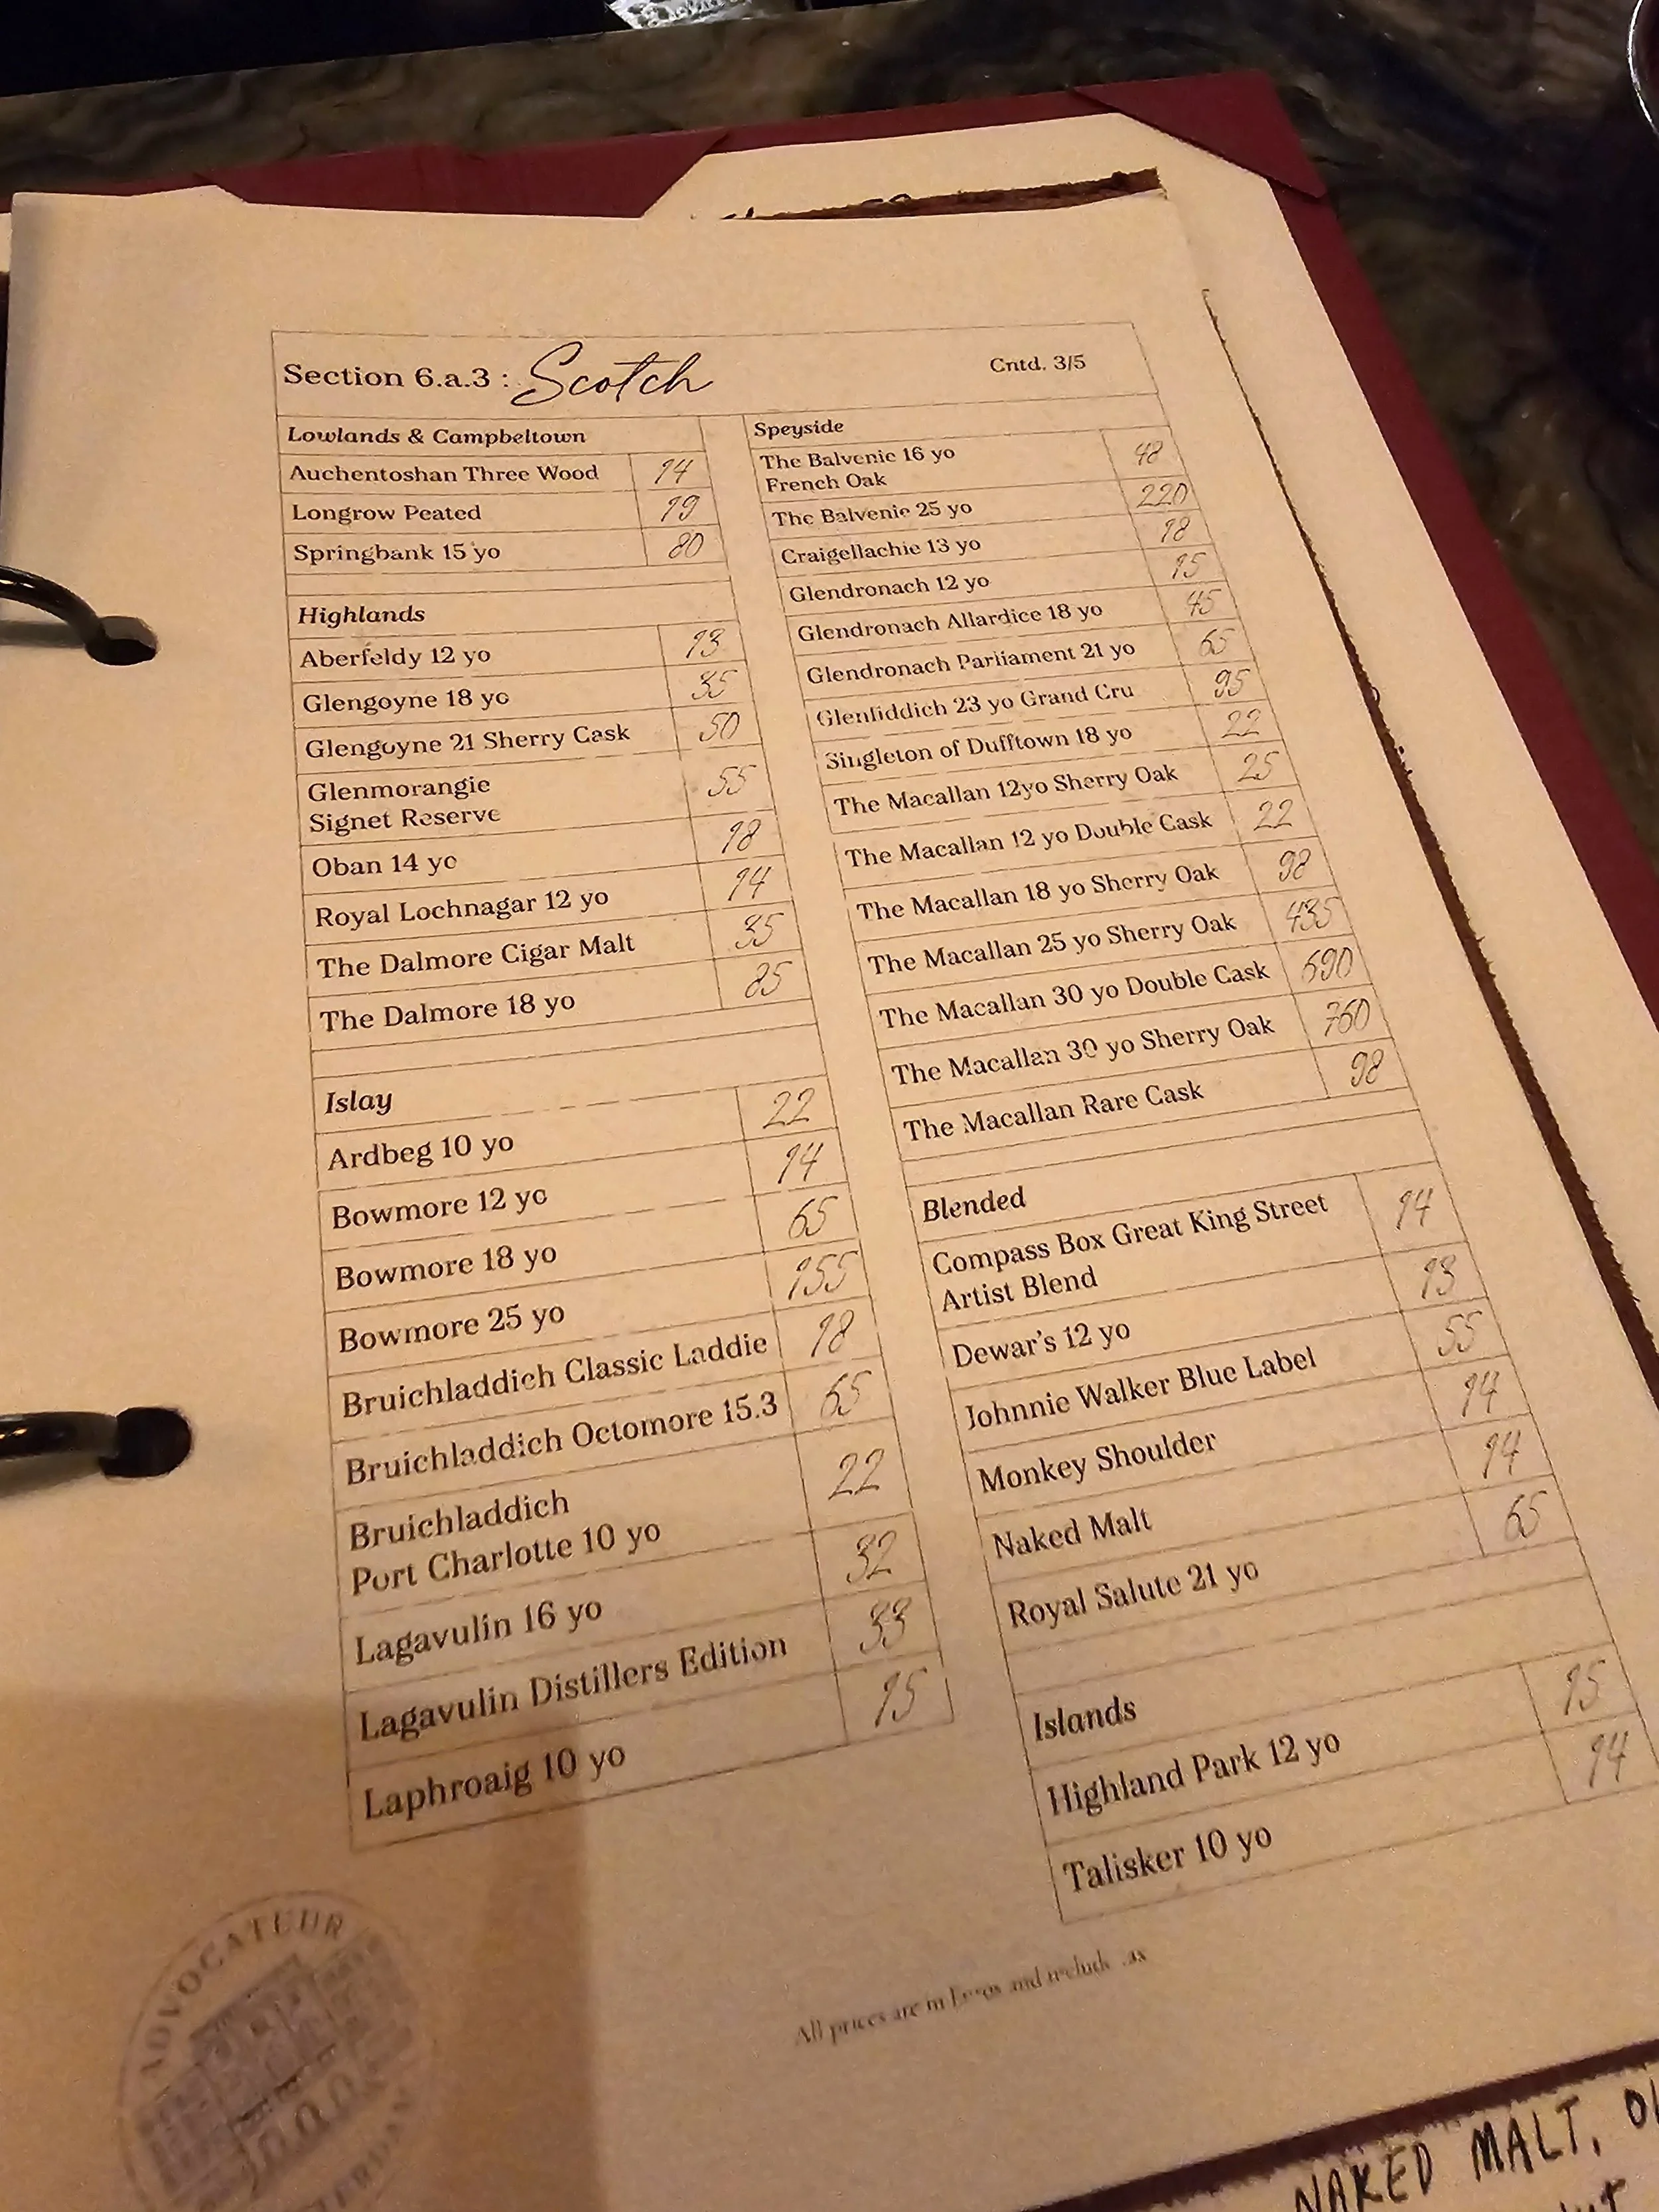 Section 6.a.3 : Scotch
Cntd. 3/5
Lowlands & Campbeltown
Auchentoshan Three Wood 14
Longrow Peated 19
Springbank 15 yo 80
Highlands
Aberfeldy 12 yo 13
Glengoyne 18 yo 35
Glengoyne 21 Sherry Cask 50
Glenmorangie
Signet Reserve 55
Oban 14 yo 18
Royal Lochnagar 12 yo 14
The Dalmore Cigar Malt 35
The Dalmore 18 yo 85
Islay
Ardbeg 10 yo 22
Bowmore 12 yo 14
Bowmore 18 yo 65
Bowmore 25 yo 155
Bruichladdich Classic Laddie 18
Bruichladdich Octomore 15.3 65
Bruichladdich
Port Charlotte 10 yo 22
Lagavulin 16 yo 32
Lagavulin Distillers Edition 33
Laphroaig 10 yo 15
Speyside
The Balvenie 16 yo
French Oak 48
The Balvenie 25 yo 220
Craigellachie 13 yo 18
Glendronach 12 yo 15
Glendronach Allardice 18 yo 45
Glendronach Parliament 21 yo 65
Glenfiddich 23 yo Grand Cru 95
Singleton of Dufftown 18 yo 22
The Macallan 12yo Sherry Oak 25
The Macallan 12 yo Double Cask 22
The Macallan 18 yo Sherry Oak 98
The Macallan 25 yo Sherry Oak 435
The Macallan 30 yo Double Cask 690
The Macallan 30 yo Sherry Oak 760
The Macallan Rare Cask 98
Blended
Compass Box Great King Street
Artist Blend 14
Dewar's 12 yo 13
Johnnie Walker Blue Label 55
Monkey Shoulder 14
Naked Malt 14
Royal Salute 21 yo 65
Islands
Highland Park 12 yo 15
Talisker 10 yo 14
All prices are in Euros and include
ADVOCATEUR
NAKED MALT,